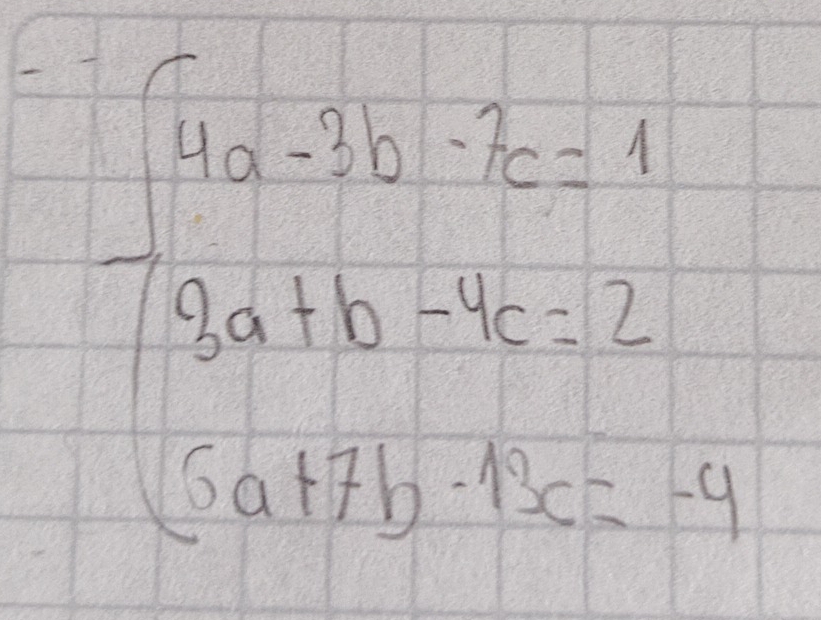 4a - 3b - 7c = 1
3a + b - 4c = 2
6a + 7b - 13c = -4